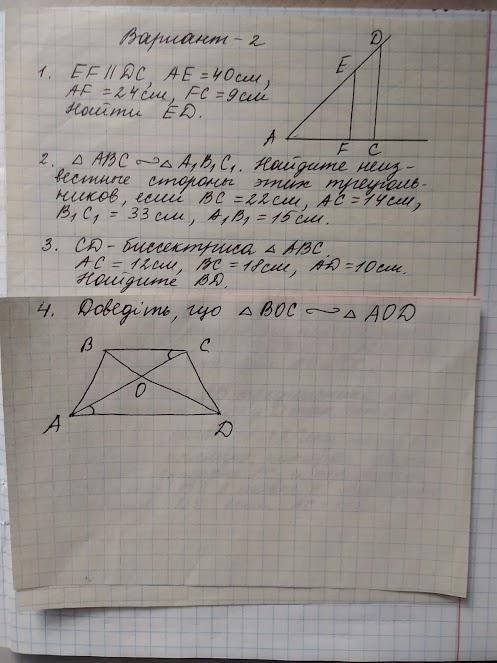 Вариант-2
1. EF || DC, AE = 40см,
AF = 24см, FC = 9см
Найти ED.
D
E
A
F
C
2. △ ABC ∾ △ A₁B₁C₁. Найдите неиз-
вестные стороны этих треуголь-
ников, если BC = 22см, AC = 14см,
B₁C₁ = 33см, A₁B₁ = 15см.
3. CD - биссектриса △ ABC.
AC = 12см, BC = 18см, AD = 10см.
Найдите BD.
4. Доведіть, що △ BOC ∾ △ AOD
B
C
O
A
D